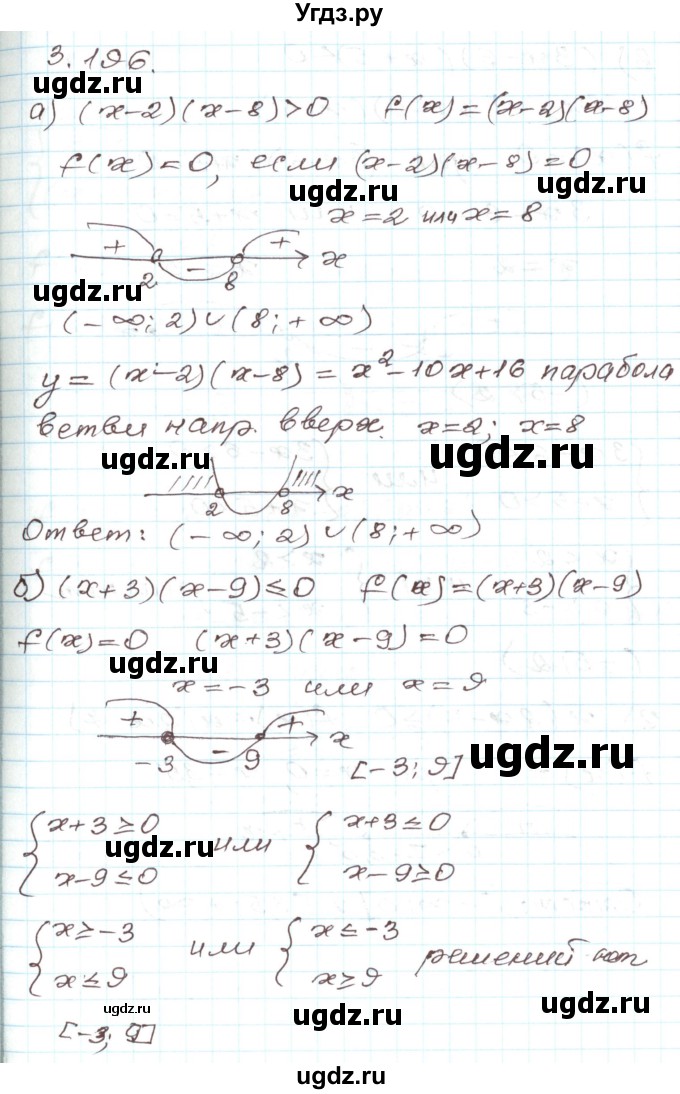 Угдз.ру
3.196.
ugdz.ru
а) (x-2)(x-8)>0 f(x)=(x-2)(x-8)
f(x)=0, если (x-2)(x-8)=0
ugdz.ru ugdz.ru
x=2 или x=8
+ - + x
2 8
ugdz.ru
(-∞; 2)∪(8;+∞)
y=(x-2)(x-8)=x²-10x+16 парабола
ветви напр. вверх. x=2; x=8
ugdz.ru ugdz.ru
2 8 x
Ответ: (-∞; 2)∪(8;+∞)
ugdz.ru
б) (x+3)(x-9)≤0 f(x)=(x+3)(x-9)
f(x)=0 (x+3)(x-9)=0
ugdz.ru
x=-3 или x=9
+ - + x
-3 9
[-3; 9]
ugdz.ru
{x+3≥0 или {x+3≤0
ugdz.ru
x-9≤0 x-9≥0
{x≥-3 или {x≤-3
x≤9 x≥9 решений нет
ugdz.ru ugdz.ru ugdz.ru
[-3; 9]
ugdz.ru